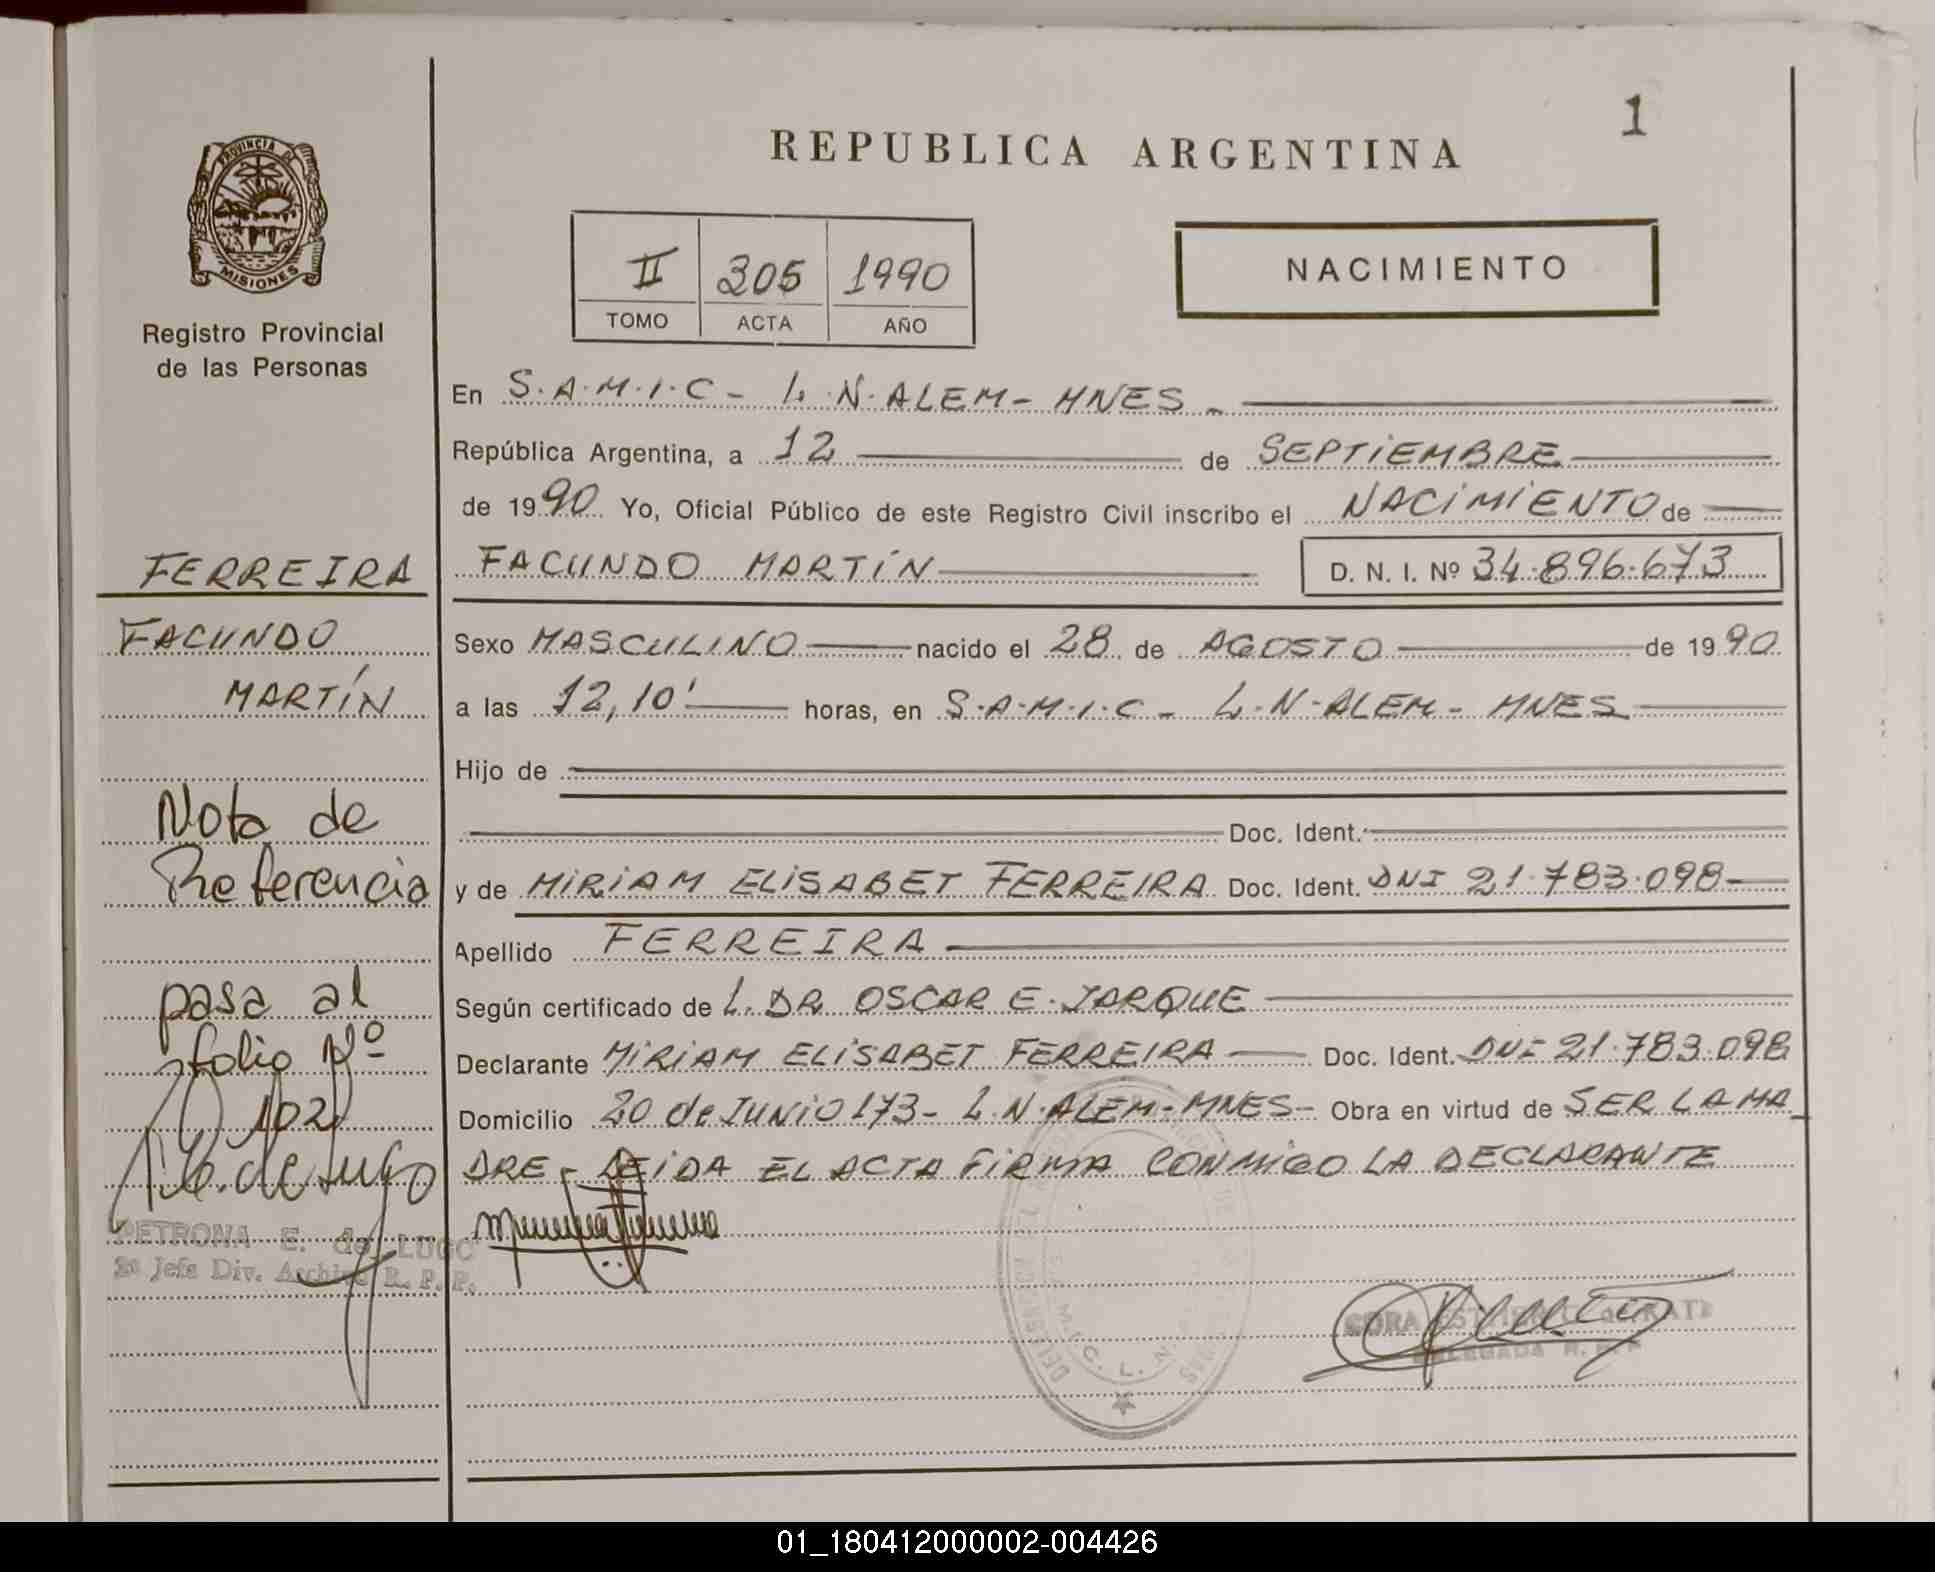 1
REPUBLICA ARGENTINA
PROVINCIA DE
MISIONES
Registro Provincial
de las Personas
II 305 1990
TOMO ACTA AÑO
NACIMIENTO
En S.A.M.I.C - L.N.ALEM - MNES -
República Argentina, a 12 de SEPTIEMBRE
de 1990 Yo, Oficial Público de este Registro Civil inscribo el NACIMIENTO de
FACUNDO MARTÍN D. N. I. Nº 34.896.673
Sexo MASCULINO nacido el 28 de AGOSTO de 1990
a las 12,10' horas, en S.A.M.I.C - L.N.ALEM - MNES
Hijo de
Doc. Ident.
y de MIRIAM ELISABET FERREIRA Doc. Ident. DNI 21.783.098
Apellido FERREIRA
Según certificado de L. DR OSCAR E. JARQUE
Declarante MIRIAM ELISABET FERREIRA Doc. Ident. DNI 21.783.098
Domicilio 20 de JUNIO 173 - L.N.ALEM - MNES - Obra en virtud de SER LA MA
DRE - LEIDA EL ACTA FIRMA CONMIGO LA DECLARANTE
FERREIRA
FACUNDO
MARTÍN
Nota de
Referencia
pasa al
folio Nº
102
PETRONA E. de LUGO
2ª Jefa Div. Archivo R. P. P.
S.A.M.I.C. L. N.
DELEGADA R. P. P
01_180412000002-004426